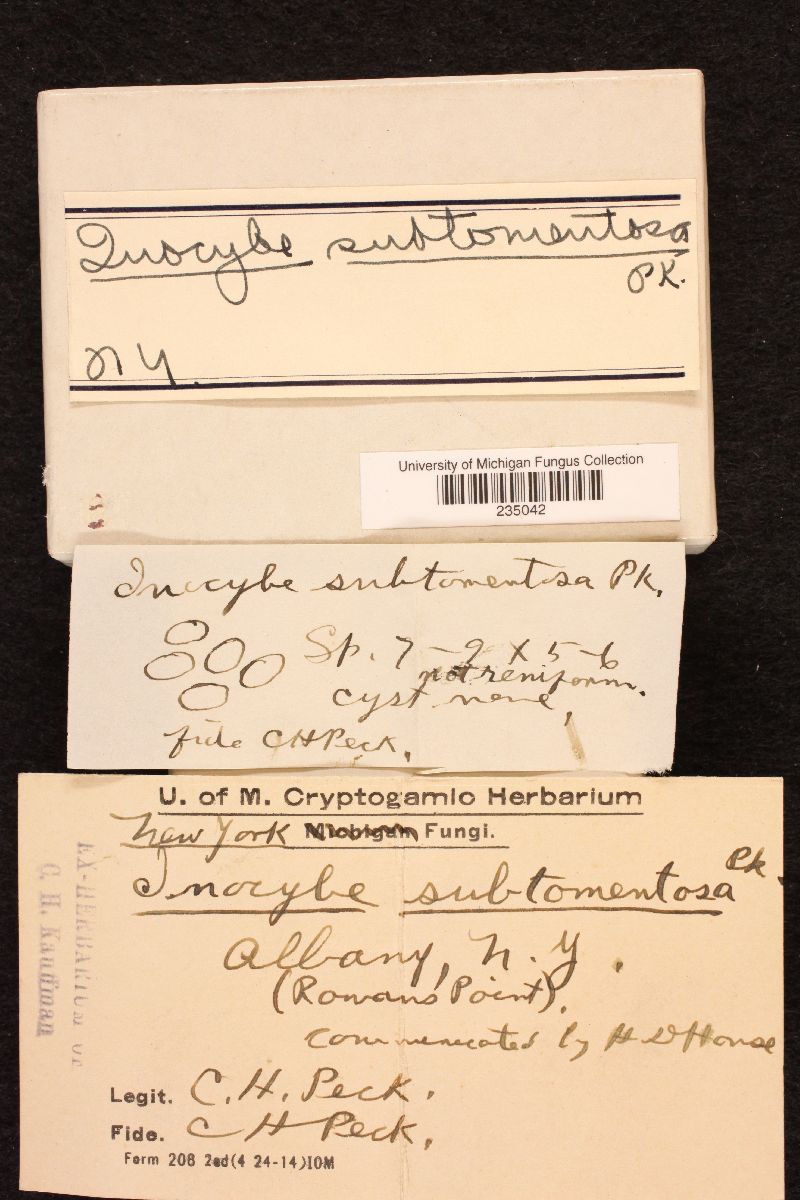 Inocybe subtomentosa
PK.
N Y.
University of Michigan Fungus Collection
235042
Inocybe subtomentosa Pk.
Sp. 7-9 x 5-6
not reniform.
cyst none,
fide CHPeck.
U. of M. Cryptogamic Herbarium
New York Michigan Fungi.
Inocybe subtomentosa Pk.
Albany, N.Y.
(Rowans Point).
communicated by H D House
Legit. C.H. Peck.
Fide. C H Peck.
Form 208 2ed(4 24-14)IOM
EX-HERBARIUM OF
C. H. Kauffman